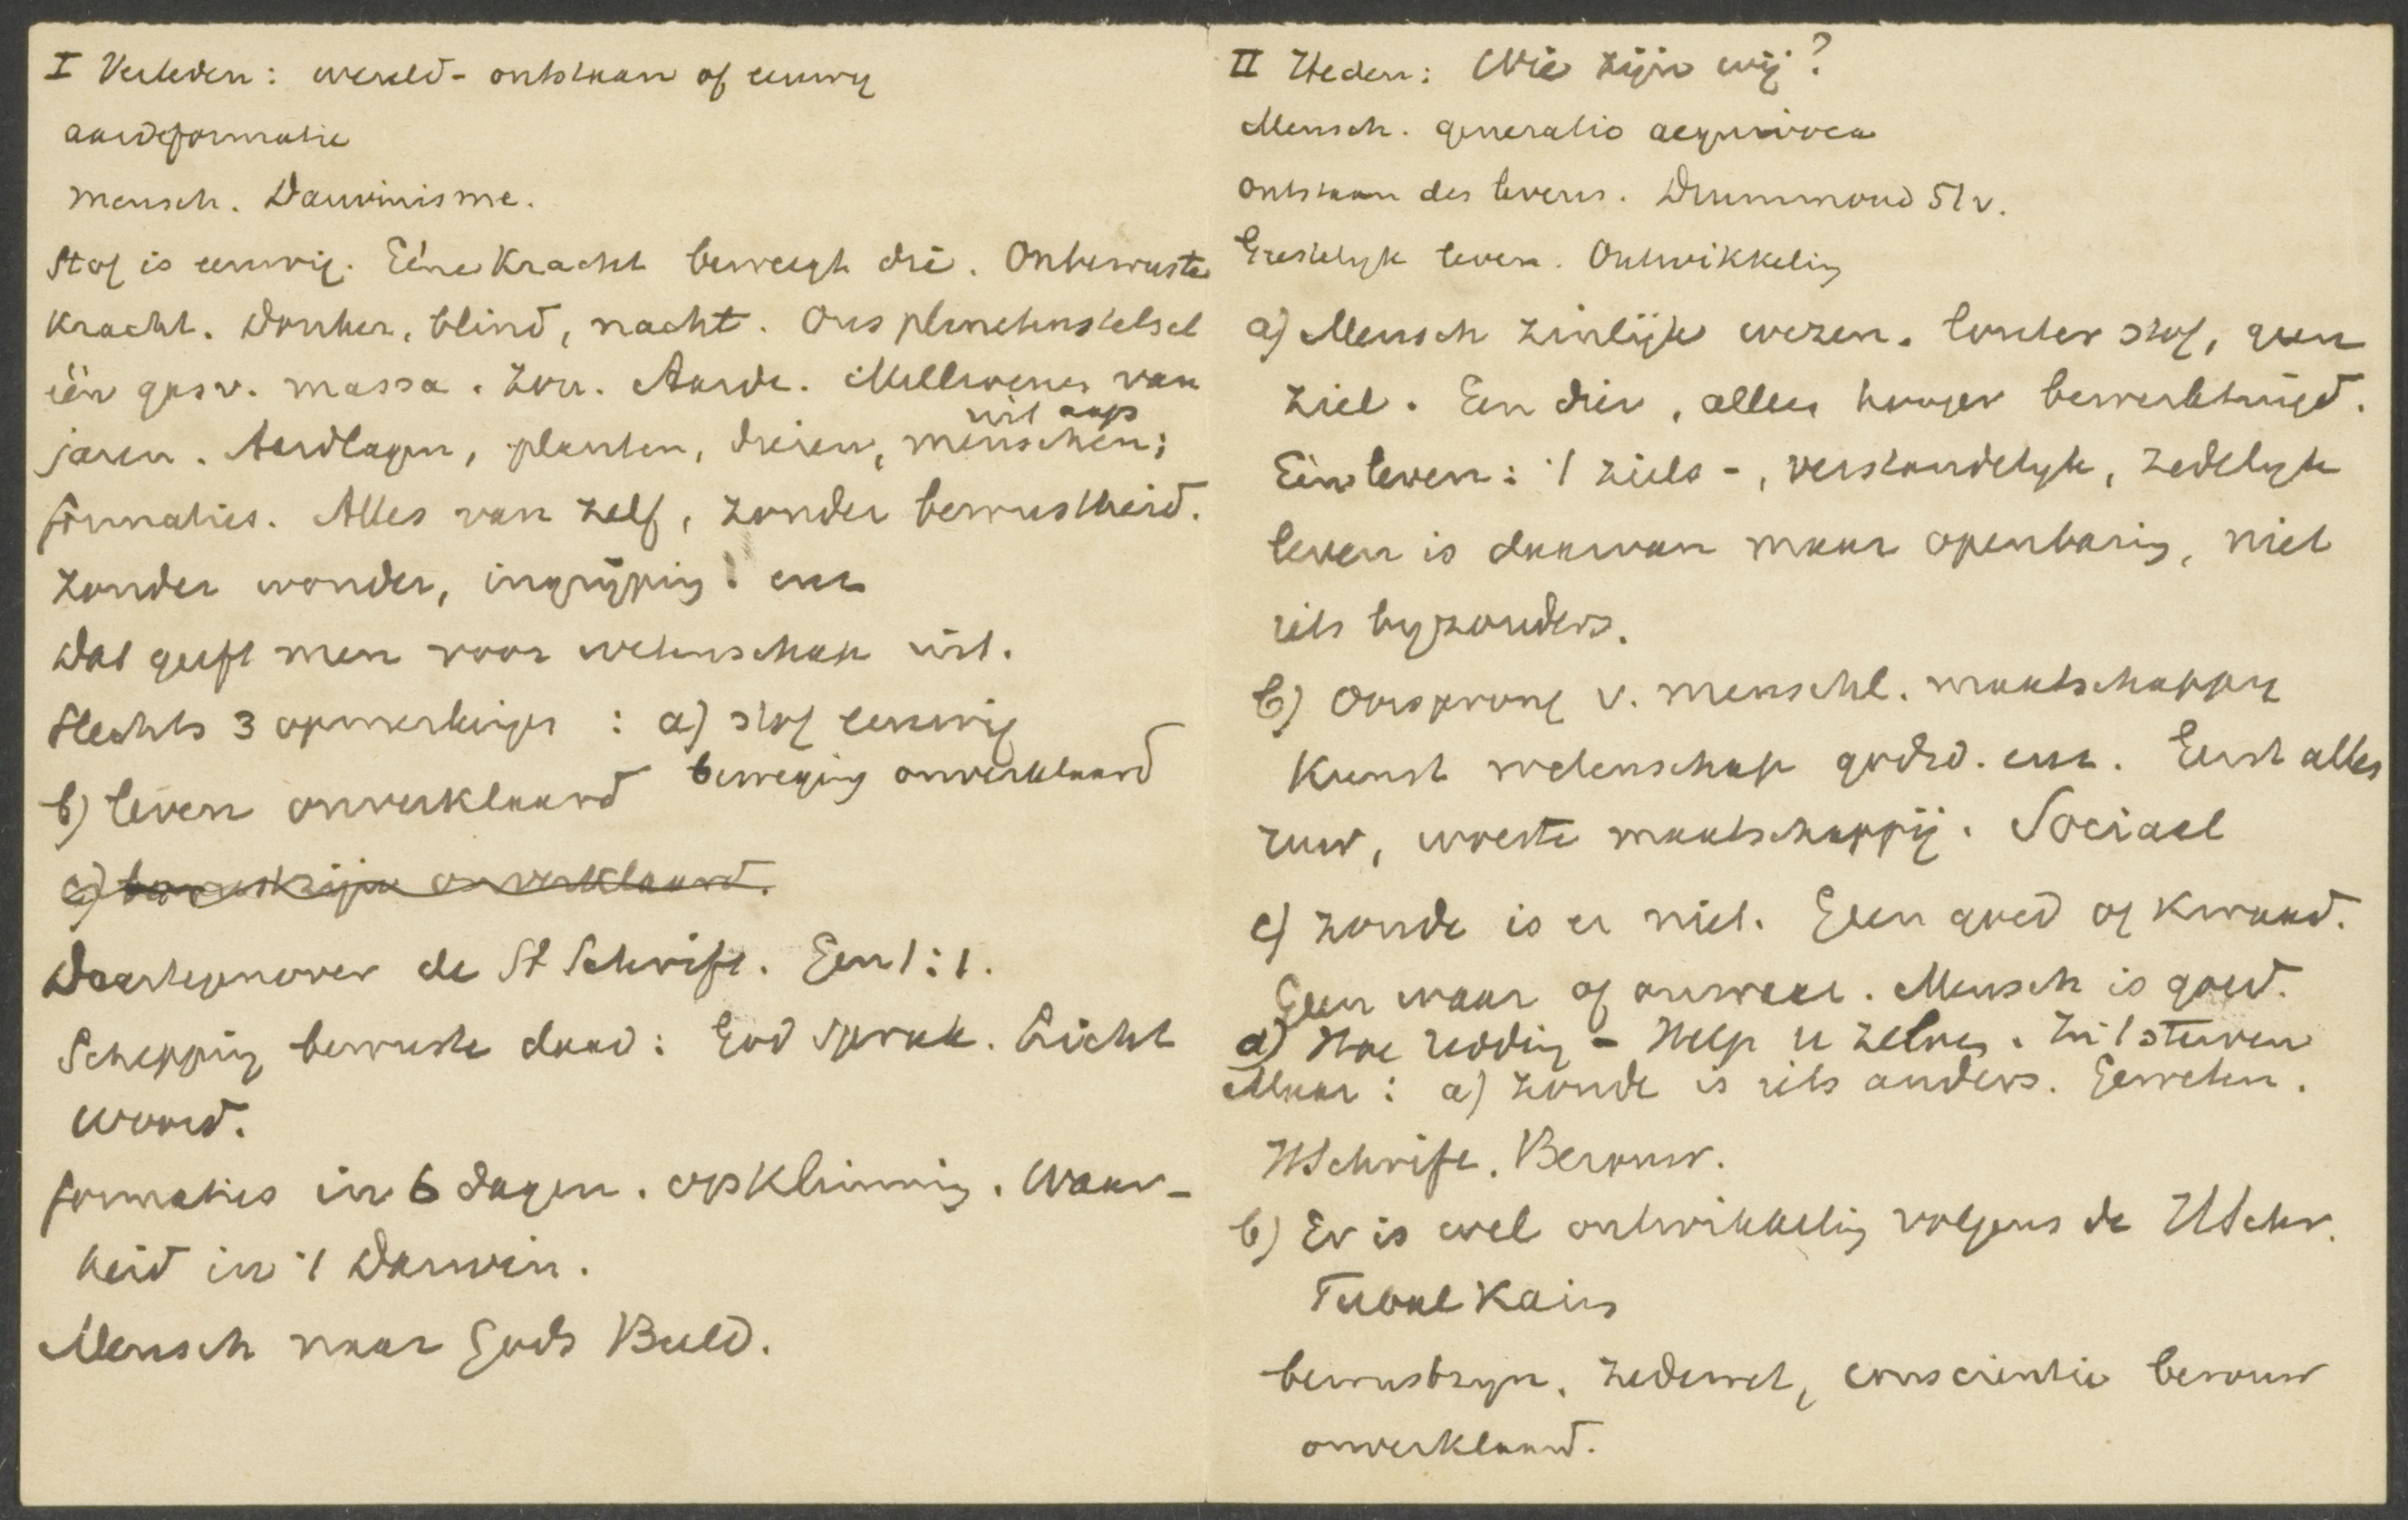 I Verleden: wereld- ontstaan of eeuwig
aardeformatie
mensch. Darwinisme.
Stof is eeuwig. Eéne Kracht beweegt die. Onbewuste
Kracht. Donker, blind, nacht. Ons planetenstelsel
één gasv. massa. Zon. Aarde. Millioenen van
uit aap
jaren. Aardlagen, planten, dieren, menschen;
formaties. Alles van zelf, zonder bewustheid.
zonder wonder, ingrijping enz
Dat geeft men voor wetenschap uit.
Slechts 3 opmerkingen : a) stof eeuwig
beweging onverklaard
b) leven onverklaard
c) bewustzijn onverklaard.
Daartegenover de H Schrift. Gen 1:1.
Schepping bewuste daad: God sprak. Licht
word.
formaties in 6 dagen. opklimming. Waar-
heid in 't Darwin.
Mensch naar Gods Beeld.
II Heden: Wie zijn wij?
Mensch. generatio aequivoca
ontstaan des levens. Drummond 51v.
Geestelijk leven. Ontwikkeling
a) Mensch zinlijk wezen. louter stof, geen
ziel. Een dier, alleen hooger bewerktuigd.
Eén leven: 't ziels-, verstandelyk, zedelyk
leven is daarvan maar openbaring, niet
iets byzonders.
b) Oorsprong v. menschl. maatschappy
Kunst wetenschap godsd. enz. Eerst alles
ruw, woeste maatschappij. Sociaal
c) zonde is er niet. Geen goed of kwaad.
Geen waar of onwaar. Mensch is goed.
d) Hoe redding - Help u zelven. In 't sterven
Maar: a) zonde is iets anders. Geweten.
HSchrift. Berouw.
b) Er is wel ontwikkeling volgens de HSchr.
Tubal Kain
bewustzyn, zedewet, conscientie berouw
onverklaard.